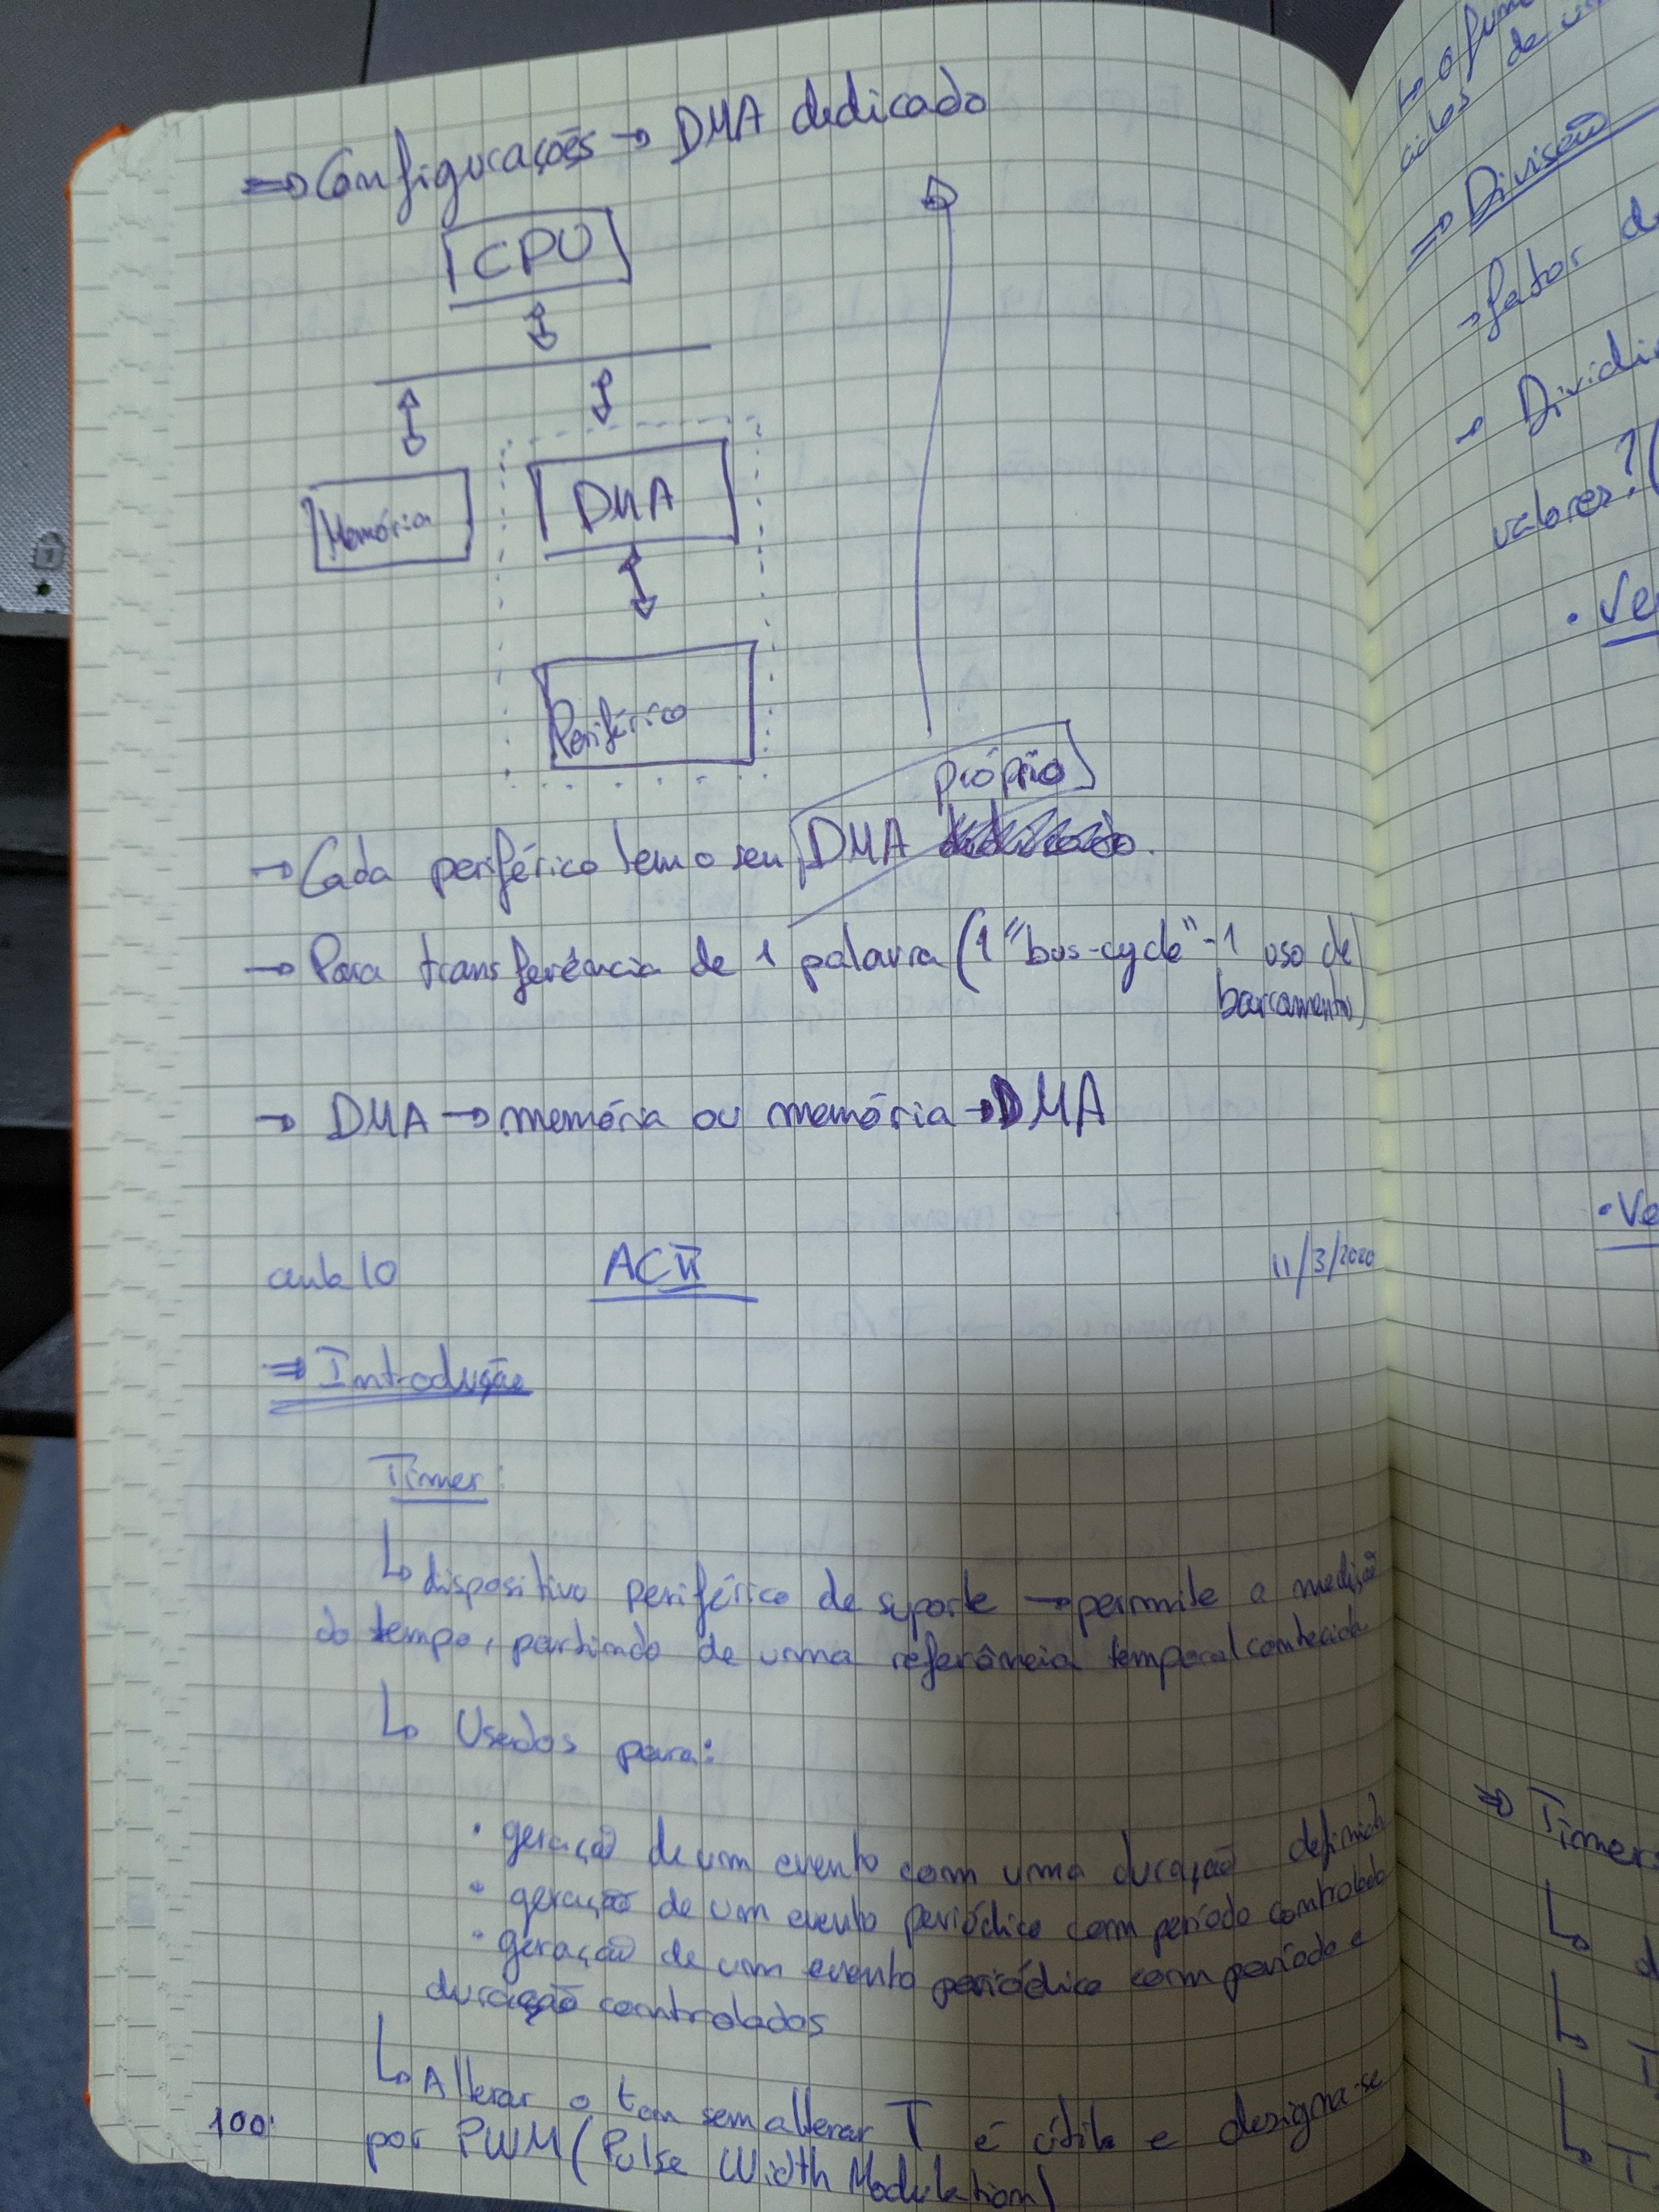 ⇒ Configurações → DMA dedicado
CPU
Memória
DMA
Periférico
próprio
→ Cada periférico tem o seu DMA
→ Para transferência de 1 palavra (1 "bus-cycle" - 1 uso de
barramento)
→ DMA → memória ou memória → DMA
aula 10 ACII 11/3/2020
⇒ Introdução
Timer:
↳ dispositivo periférico de suporte → permite a medição
do tempo, partindo de uma referência temporal conhecida
↳ Usados para:
· geração de um evento com uma duração definida
· geração de um evento periódico com período controlado
· geração de um evento periódico com período e
duração controlados
↳ Alterar o ton sem alterar T é útil e designa-se
por PWM (Pulse Width Modulation)
100
↳ o
ciclos de
⇒ Divisão
→ fator d
→ Dividi
valores? (
· Ve
· Ve
⇒ Timers
↳ d
↳ T
↳ T